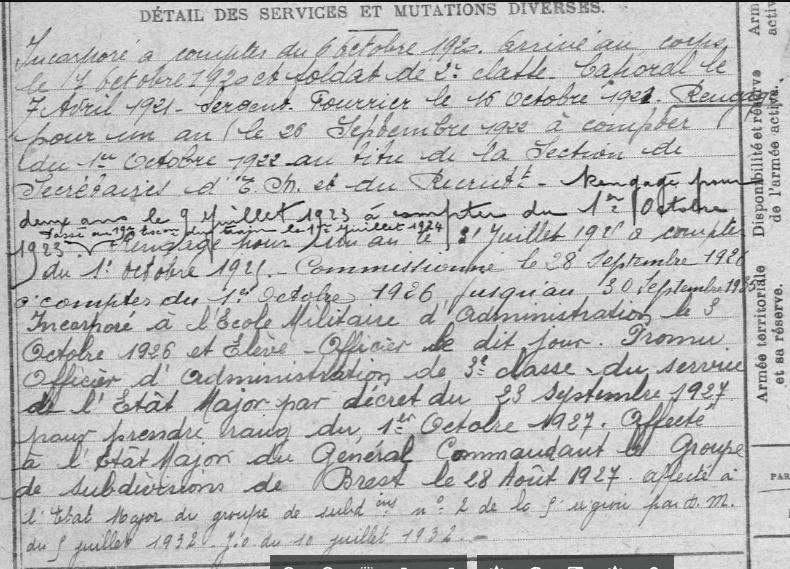 DÉTAIL DES SERVICES ET MUTATIONS DIVERSES.
Incorporé à compter du 6 octobre 1920. Arrivé au corps
le 17 octobre 1920 et soldat de 2e classe. Caporal le
7 Avril 1921. Sergent Fourrier le 16 Octobre 1921. Rengagé
pour un an le 26 Septembre 1922 à compter
du 1er Octobre 1922 au titre de la Section de
Secrétaires d'E. M. et du Recrutt - Rengagé pour
deux ans le 9 Juillet 1923 à compter du 1er Octobre
Passé au 19e du train le 1er Juillet 1924
1923. Rengagé pour un an le 31 Juillet 1925 à compter
du 1er octobre 1925. - Commissionné le 28 Septembre 1926
à compter du 1er Octobre 1926 jusqu'au 30 Septembre 1935
Incorporé à l'Ecole Militaire d'Administration le 3
Octobre 1926 et Elève - Officier le dit jour. Promu
Officier d'Administration de 3e classe du service
de l'Etat Major par décret du 23 Septembre 1927
pour prendre rang du 1er Octobre 1927. Affecté
à l'Etat Major du Général Commandant le Groupe
de subdivisions de Brest le 28 Août 1927. affecté à
l'Etat Major du groupe de subdions n° 2 de la 5e région par D. M.
du 5 juillet 1932. J.O du 10 juillet 1932. -
Disponibilité et réserve
de l'armée active.
Armée territoriale
et sa réserve.
Arm
activ
PAR